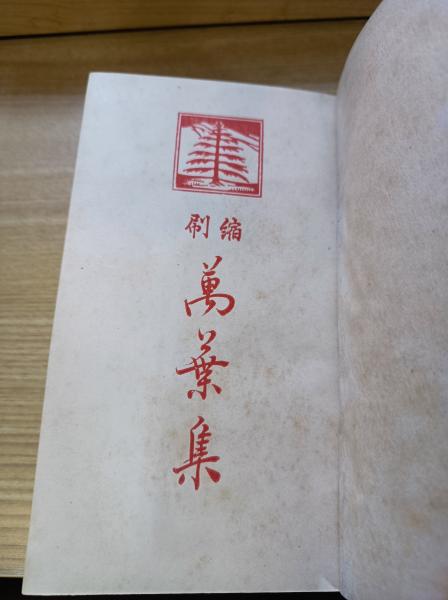 縮刷
萬葉集